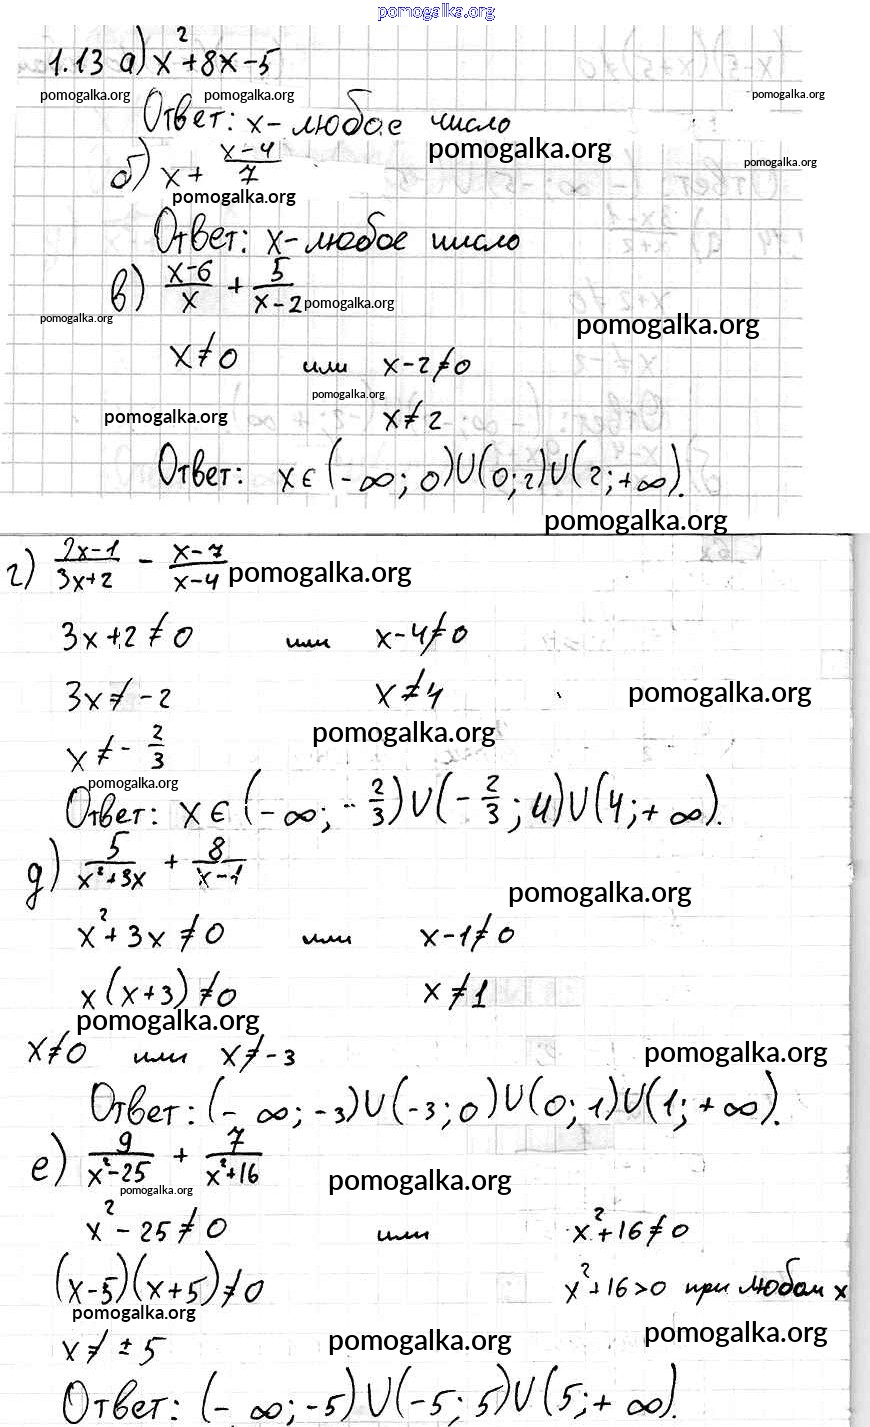 pomogalka.org
1.13 а) x² + 8x - 5
pomogalka.org pomogalka.org pomogalka.org
Ответ: x - любое число
pomogalka.org
б) x + (x-4)/7
pomogalka.org
pomogalka.org
Ответ: x - любое число
в) (x-6)/x + 5/(x-2)
pomogalka.org
pomogalka.org pomogalka.org
x ≠ 0 или x - 2 ≠ 0
pomogalka.org
pomogalka.org x ≠ 2
Ответ: x ∈ (-∞; 0)U(0; 2)U(2; +∞).
pomogalka.org
г) (2x-1)/(3x+2) - (x-7)/(x-4)
pomogalka.org
3x + 2 ≠ 0 или x - 4 ≠ 0
3x ≠ -2 x ≠ 4
pomogalka.org
pomogalka.org
x ≠ - 2/3
pomogalka.org
Ответ: x ∈ (-∞; -2/3)U(-2/3; 4)U(4; +∞).
д) 5/(x²+3x) + 8/(x-1)
pomogalka.org
x² + 3x ≠ 0 или x - 1 ≠ 0
x(x+3) ≠ 0 x ≠ 1
pomogalka.org
x ≠ 0 или x ≠ -3
pomogalka.org
Ответ: (-∞; -3)U(-3; 0)U(0; 1)U(1; +∞).
е) 9/(x²-25) + 7/(x²+16)
pomogalka.org
pomogalka.org
x² - 25 ≠ 0 или x² + 16 ≠ 0
(x-5)(x+5) ≠ 0 x² + 16 > 0 при любом x
pomogalka.org
pomogalka.org
pomogalka.org
x ≠ ± 5
Ответ: (-∞; -5)U(-5; 5)U(5; +∞).